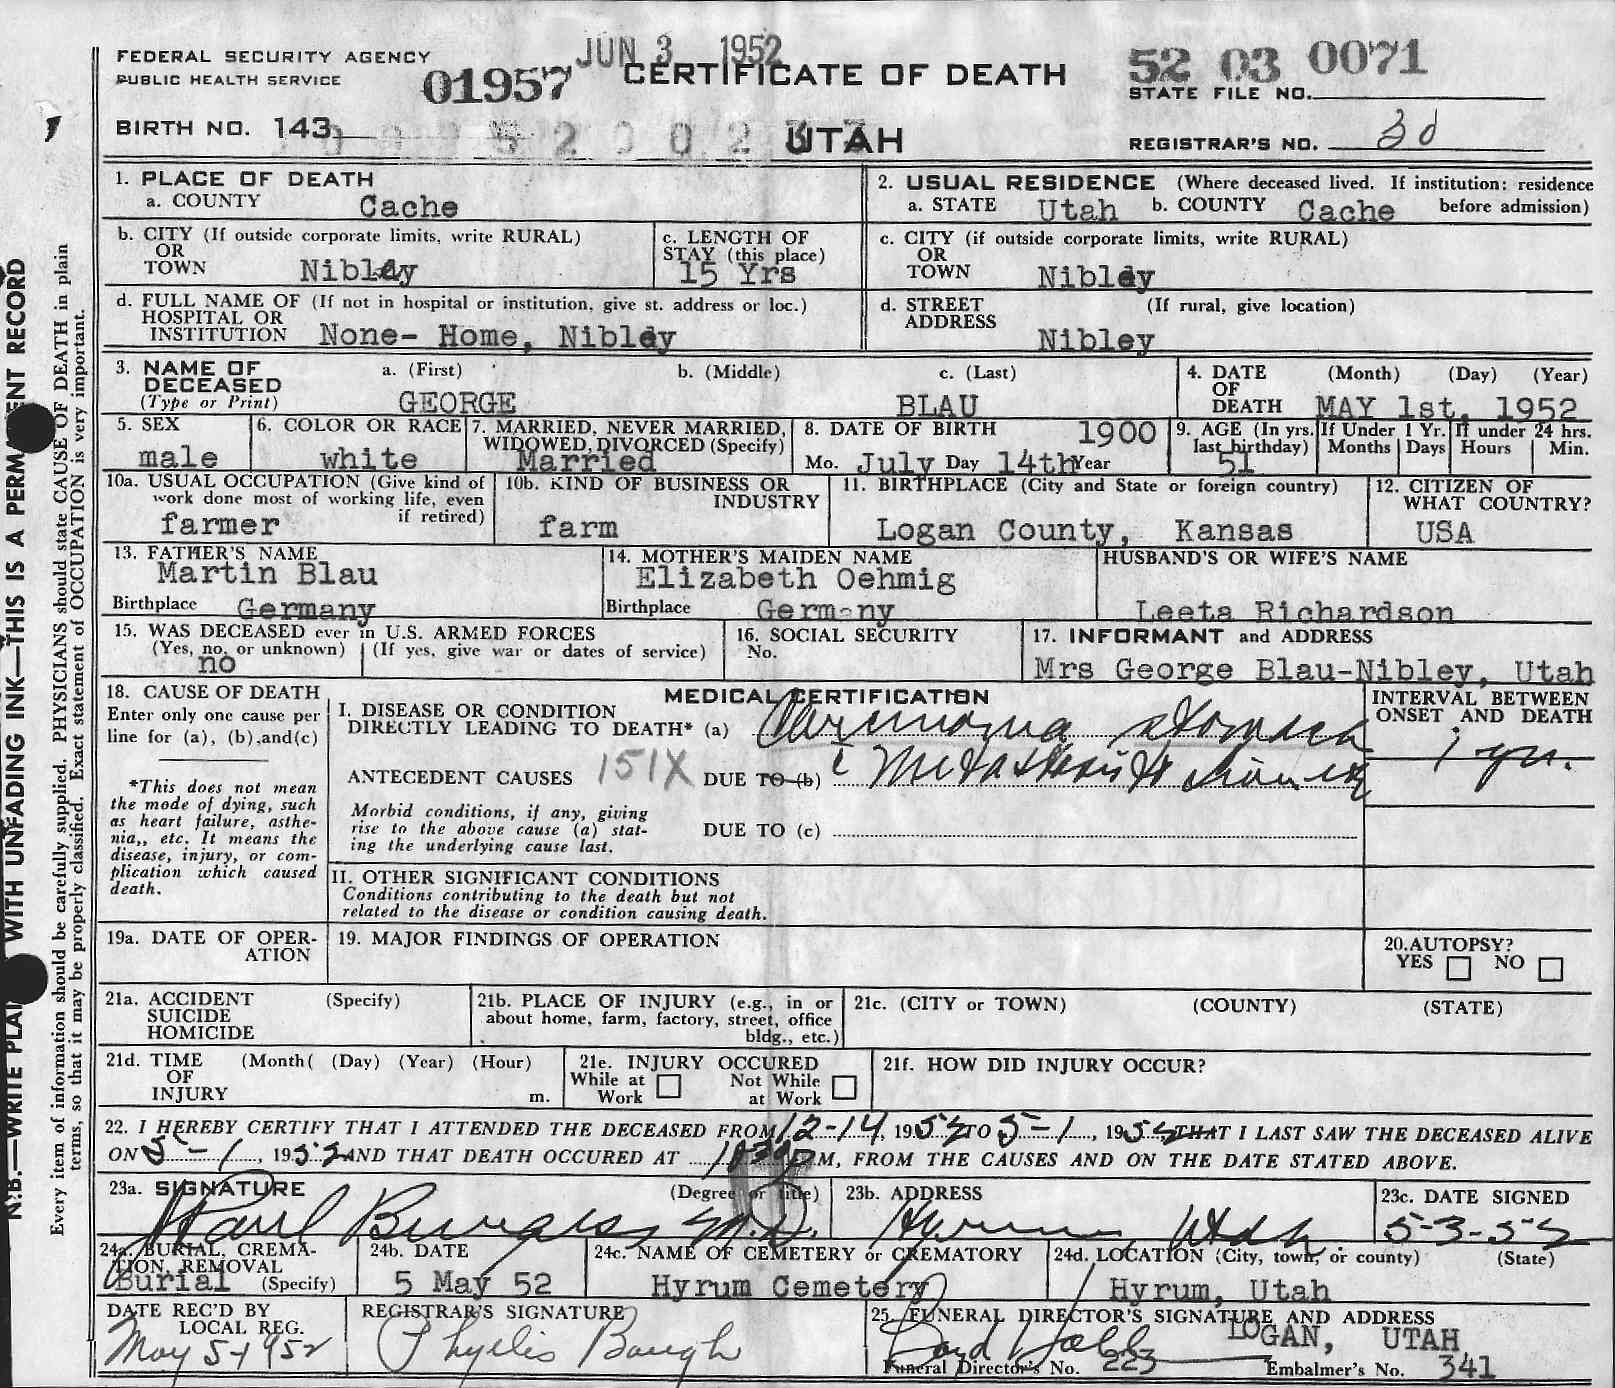 JUN 3 1952
FEDERAL SECURITY AGENCY
PUBLIC HEALTH SERVICE
01957
CERTIFICATE OF DEATH
52 03 0071
STATE FILE NO.
BIRTH NO. 143
UTAH
REGISTRAR'S NO. 30
1. PLACE OF DEATH
a. COUNTY Cache
2. USUAL RESIDENCE (Where deceased lived. If institution: residence
a. STATE Utah b. COUNTY Cache before admission)
b. CITY (If outside corporate limits, write RURAL)
OR
TOWN Nibley
c. LENGTH OF
STAY (this place)
15 Yrs
c. CITY (if outside corporate limits, write RURAL)
OR
TOWN Nibley
d. FULL NAME OF (If not in hospital or institution, give st. address or loc.)
HOSPITAL OR
INSTITUTION None- Home, Nibley
d. STREET (If rural, give location)
ADDRESS Nibley
3. NAME OF a. (First) b. (Middle) c. (Last)
DECEASED
(Type or Print) GEORGE BLAU
4. DATE (Month) (Day) (Year)
OF
DEATH MAY 1st, 1952
5. SEX
male
6. COLOR OR RACE
white
7. MARRIED, NEVER MARRIED,
WIDOWED, DIVORCED (Specify)
Married
8. DATE OF BIRTH 1900
Mo. July Day 14th Year
9. AGE (In yrs.
last birthday)
51
If Under 1 Yr.
Months Days
If under 24 hrs.
Hours Min.
10a. USUAL OCCUPATION (Give kind of
work done most of working life, even
if retired)
farmer
10b. KIND OF BUSINESS OR
INDUSTRY
farm
11. BIRTHPLACE (City and State or foreign country)
Logan County, Kansas
12. CITIZEN OF
WHAT COUNTRY?
USA
13. FATHER'S NAME
Martin Blau
Birthplace Germany
14. MOTHER'S MAIDEN NAME
Elizabeth Oehmig
Birthplace Germany
HUSBAND'S OR WIFE'S NAME
Leeta Richardson
15. WAS DECEASED ever in U.S. ARMED FORCES
(Yes, no, or unknown) (If yes, give war or dates of service)
no
16. SOCIAL SECURITY
No.
17. INFORMANT and ADDRESS
Mrs George Blau-Nibley, Utah
18. CAUSE OF DEATH
Enter only one cause per
line for (a), (b), and (c)
*This does not mean
the mode of dying, such
as heart failure, asthe-
nia,, etc. It means the
disease, injury, or com-
plication which caused
death.
MEDICAL CERTIFICATION
I. DISEASE OR CONDITION
DIRECTLY LEADING TO DEATH* (a) Carcinoma stomach
ANTECEDENT CAUSES 151X DUE TO (b) c Metastasis to
Morbid conditions, if any, giving
rise to the above cause (a) stat-
ing the underlying cause last.
DUE TO (c)
INTERVAL BETWEEN
ONSET AND DEATH
1 yr.
II. OTHER SIGNIFICANT CONDITIONS
Conditions contributing to the death but not
related to the disease or condition causing death.
19a. DATE OF OPER-
ATION
19. MAJOR FINDINGS OF OPERATION
20. AUTOPSY?
YES NO
21a. ACCIDENT (Specify)
SUICIDE
HOMICIDE
21b. PLACE OF INJURY (e.g., in or
about home, farm, factory, street, office
bldg., etc.)
21c. (CITY or TOWN) (COUNTY) (STATE)
21d. TIME (Month( (Day) (Year) (Hour)
OF
INJURY m.
21e. INJURY OCCURED
While at Not While
Work at Work
21f. HOW DID INJURY OCCUR?
22. I HEREBY CERTIFY THAT I ATTENDED THE DECEASED FROM 12-14, 1952 TO 5-1, 1952 THAT I LAST SAW THE DECEASED ALIVE
ON 5-1, 1952 AND THAT DEATH OCCURED AT 1030 P M, FROM THE CAUSES AND ON THE DATE STATED ABOVE.
23a. SIGNATURE (Degree or title)
Burgess M.D.
23b. ADDRESS
Hyrum Utah
23c. DATE SIGNED
5-3-52
24a. BURIAL, CREMA-
TION, REMOVAL
Burial (Specify)
24b. DATE
5 May 52
24c. NAME OF CEMETERY or CREMATORY
Hyrum Cemetery
24d. LOCATION (City, town, or county) (State)
Hyrum, Utah
DATE REC'D BY
LOCAL REG.
May 5-1952
REGISTRAR'S SIGNATURE
Phyllis Baugh
25. FUNERAL DIRECTOR'S SIGNATURE AND ADDRESS
Boyd Hall LOGAN, UTAH
Funeral Director's No. 223 Embalmer's No. 341
N.B.—WRITE PLAI WITH UNFADING INK—THIS IS A PERMA ENT RECORD
Every item of information should be carefully supplied. PHYSICIANS should state CAUSE OF DEATH in plain
terms, so that it may be properly classified. Exact statement of OCCUPATION is very important.